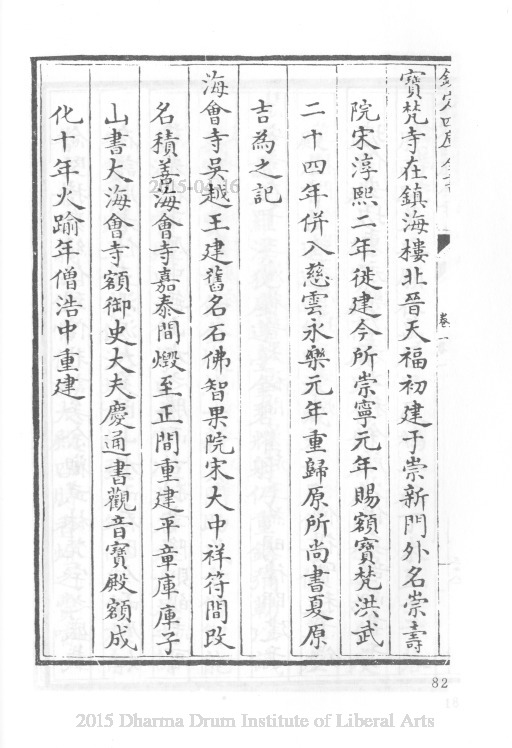 寶梵寺在鎮海樓北晉天福初建于崇新門外名崇壽
院宋淳熙二年徙建今所崇寧元年賜額寶梵洪武
二十四年併入慈雲永樂元年重歸原所尚書夏原
吉為之記
海會寺吳越王建舊名石佛智果院宋大中祥符間改
名積善海會寺嘉泰間燬至正間重建平章庫庫子
山書大海會寺額御史大夫慶通書觀音寶殿額成
化十年火踰年僧浩中重建
卷一
82
2015 Dharma Drum Institute of Liberal Arts